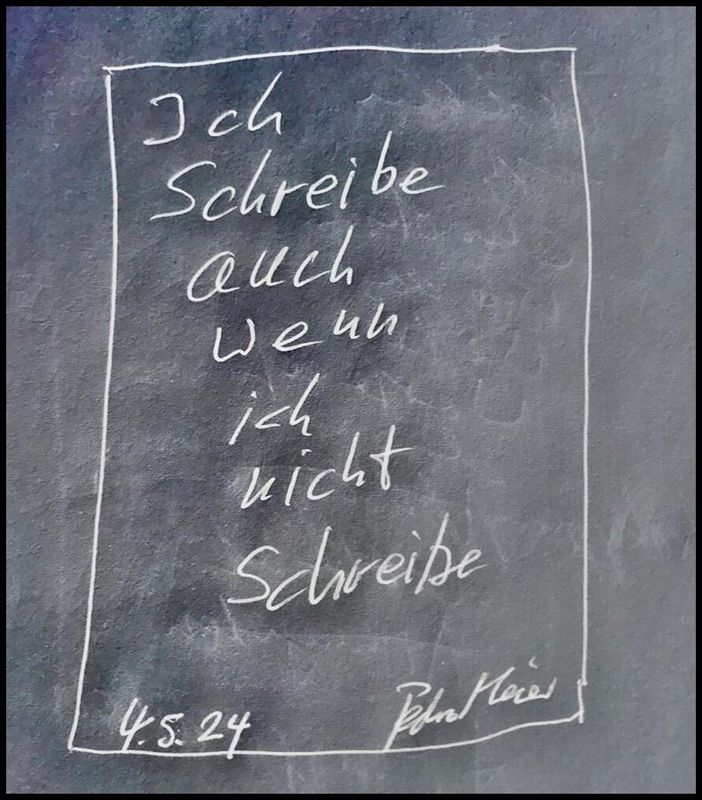 Ich
Schreibe
auch
wenn
ich
nicht
Schreibe
4.5.24 Pedro Meier